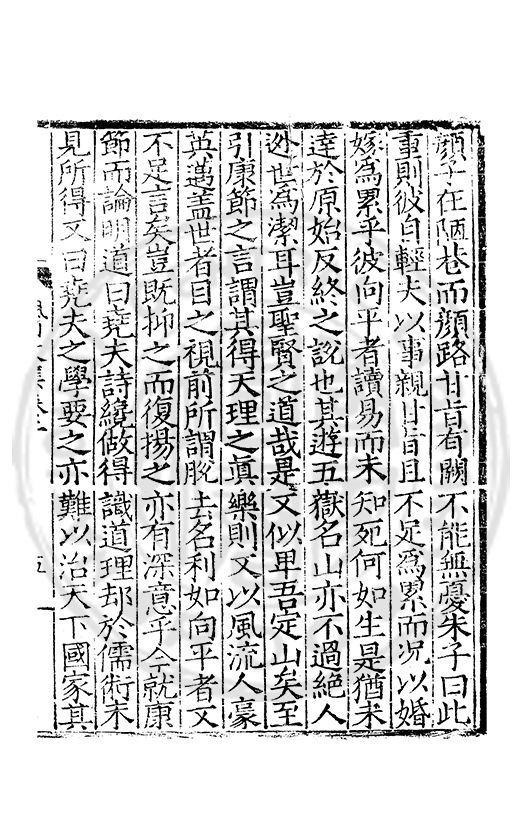 顔子在陋巷而顔路甘旨有闕不能無憂朱子曰此
重則彼自輕夫以事親甘旨且不足爲累而况以婚
嫁爲累乎彼向平者讀易而未知死何如生是猶未
達於原始反終之説也其遊五嶽名山亦不過絶人
迯世爲潔耳豈聖賢之道哉是又似卑吾定山矣至
引康節之言謂其得天理之真樂則又以風流人豪
英邁盖世者目之視前所謂脱去名利如向平者又
不足言矣豈既抑之而復揚之亦有深意乎今就康
節而論明道曰堯夫詩纔做得識道理却於儒術未
見所得又曰堯夫之學要之亦難以治天下國家其
五